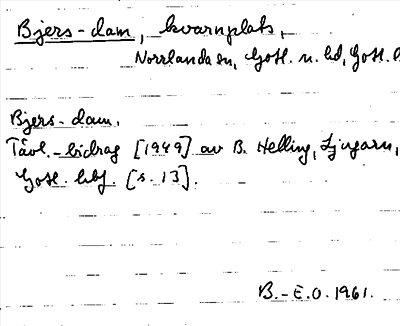 Bjers-dam, kvarnplats,
Norrlanda sn, Gotl. n. hd, Gotl. l
Bjers-dam.
Tävl.-bidrag [1949] av B. Helling, Ljugarn,
Gotl. hbf. [s. 13].
B.-E.O. 1961.